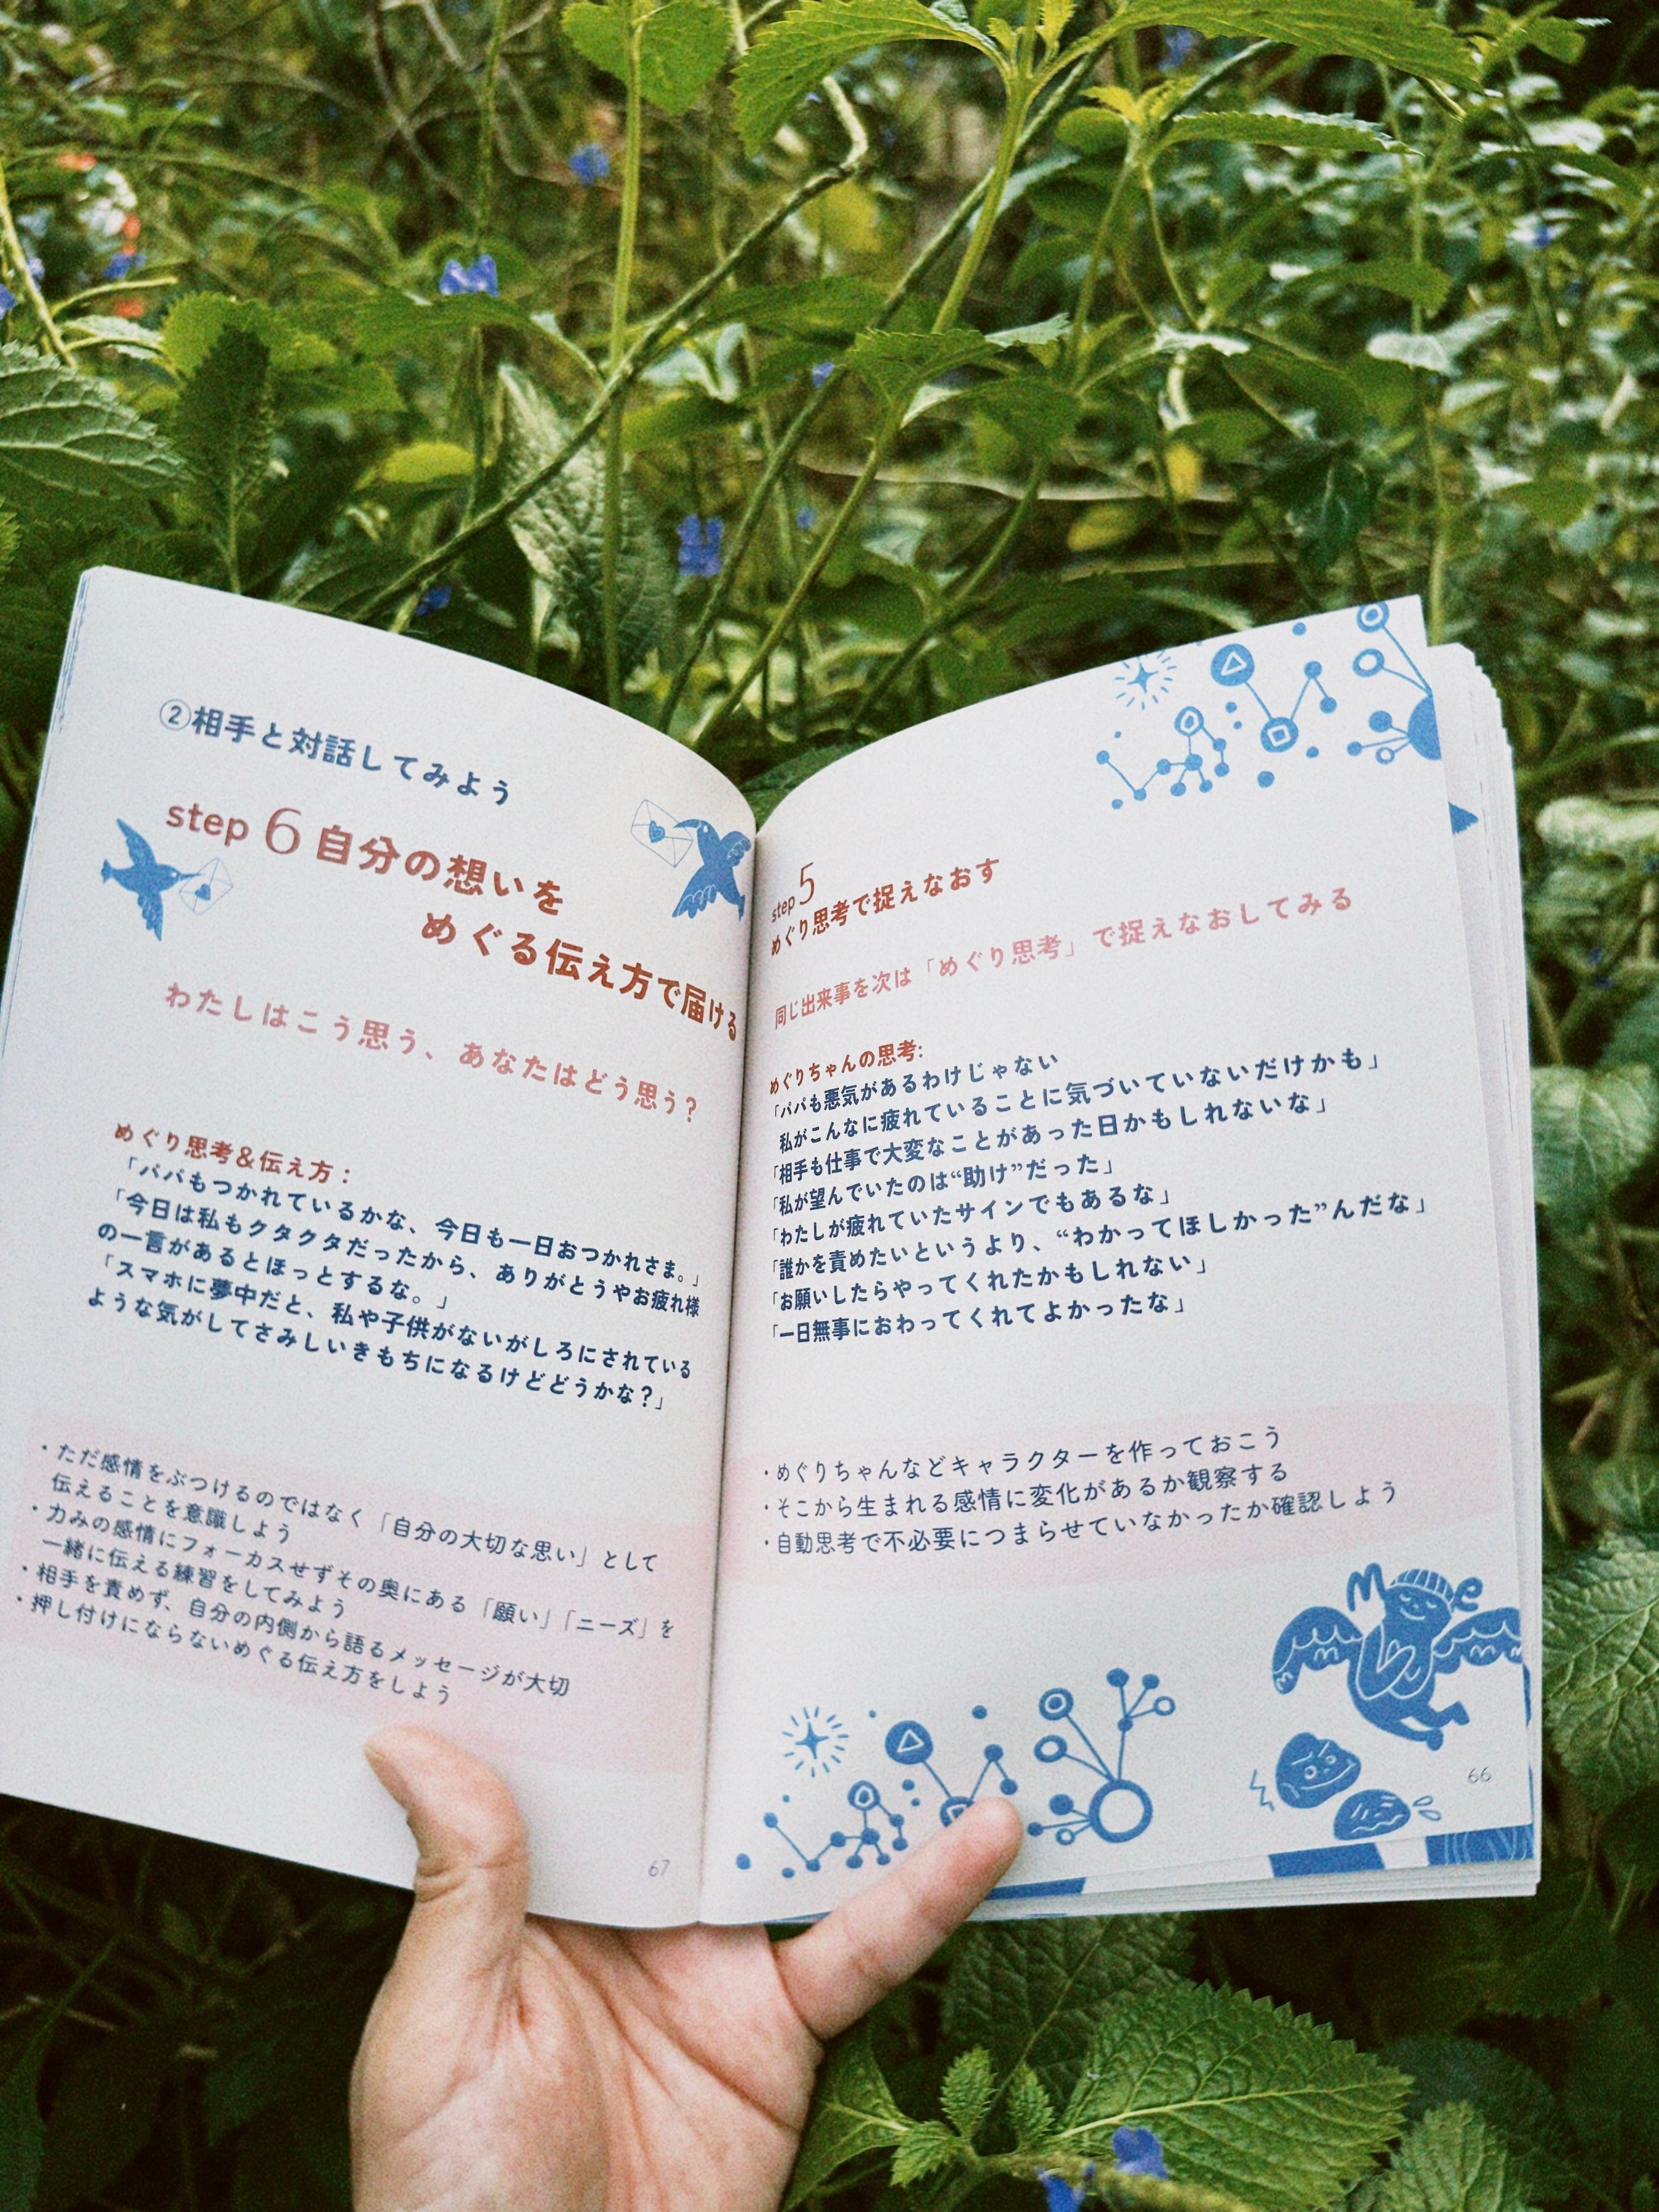 step5
めぐり思考で捉えなおす
同じ出来事を次は「めぐり思考」で捉えなおしてみる
めぐりちゃんの思考:
「パパも悪気があるわけじゃない
私がこんなに疲れていることに気づいていないだけかも」
「相手も仕事で大変なことがあった日かもしれないな」
「私が望んでいたのは“助け”だった」
「わたしが疲れていたサインでもあるな」
「誰かを責めたいというより、“わかってほしかった”んだな」
「お願いしたらやってくれたかもしれない」
「一日無事におわってくれてよかったな」
・めぐりちゃんなどキャラクターを作っておこう
・そこから生まれる感情に変化があるか観察する
・自動思考で不必要につまらせていなかったか確認しよう
Me
66
②相手と対話してみよう
step 6 自分の想いを
めぐる伝え方で届ける
わたしはこう思う、あなたはどう思う?
めぐり思考&伝え方:
「パパもつかれているかな、今日も一日おつかれさま。」
「今日は私もクタクタだったから、ありがとうやお疲れ様
の一言があるとほっとするな。」
「スマホに夢中だと、私や子供がないがしろにされている
ような気がしてさみしいきもちになるけどどうかな?」
・ただ感情をぶつけるのではなく「自分の大切な思い」として
伝えることを意識しよう
・力みの感情にフォーカスせずその奥にある「願い」「ニーズ」を
一緒に伝える練習をしてみよう
・相手を責めず、自分の内側から語るメッセージが大切
・押し付けにならないめぐる伝え方をしよう
67